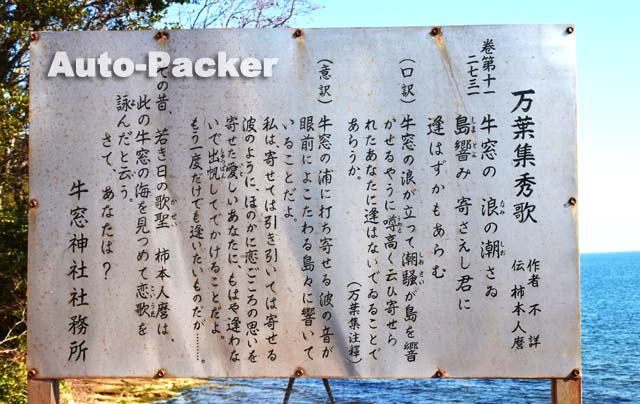 Auto-Packer
万葉集秀歌
作者 不詳
伝 柿本人麿
巻第十一
二七三一
牛窓の 浪の潮さゐ
島響み 寄さえし君に
逢はずかもあらむ
(口訳) 牛窓の浪が立って潮騒が島を響
かせるやうに噂高く云ひ寄せら
れたあなたに逢はないでゐることで
あらうか。
(万葉集注釋)
(意訳) 牛窓の浦に打ち寄せる波の音が
眼前によこたわる島々に響いて
いることだよ
私は寄せては引き引いては寄せる
波のように、ほのかに恋ごころの思いを
寄せた愛しいあなたに、もはや逢わな
いで出帆してでかけることだよ。
もう一度だけでも逢いたいものだが……。
の昔、若き日の歌聖 柿本人麿は、
此の牛窓の海を見つめて恋歌を
詠んだと云う。
さて、あなたは?
牛窓神社社務所